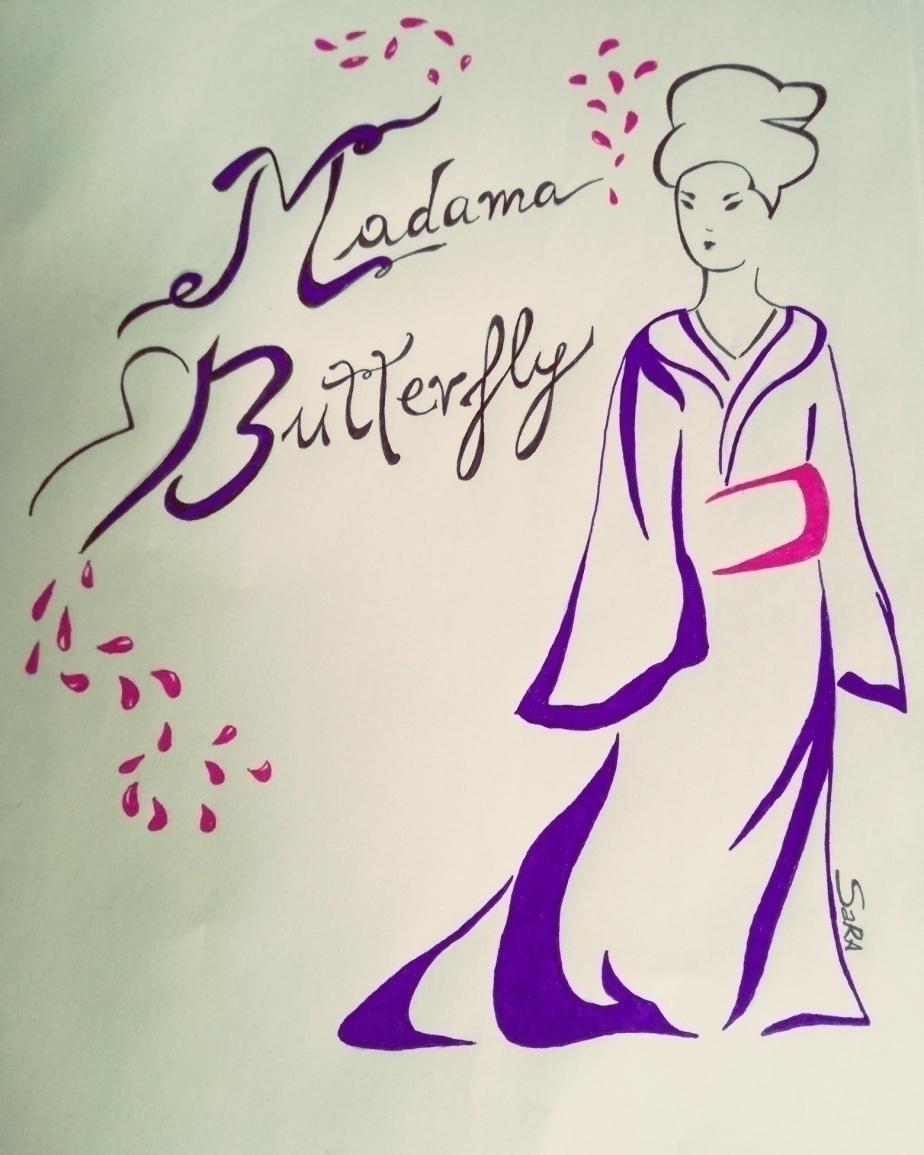 Madama
Butterfly
SaRA